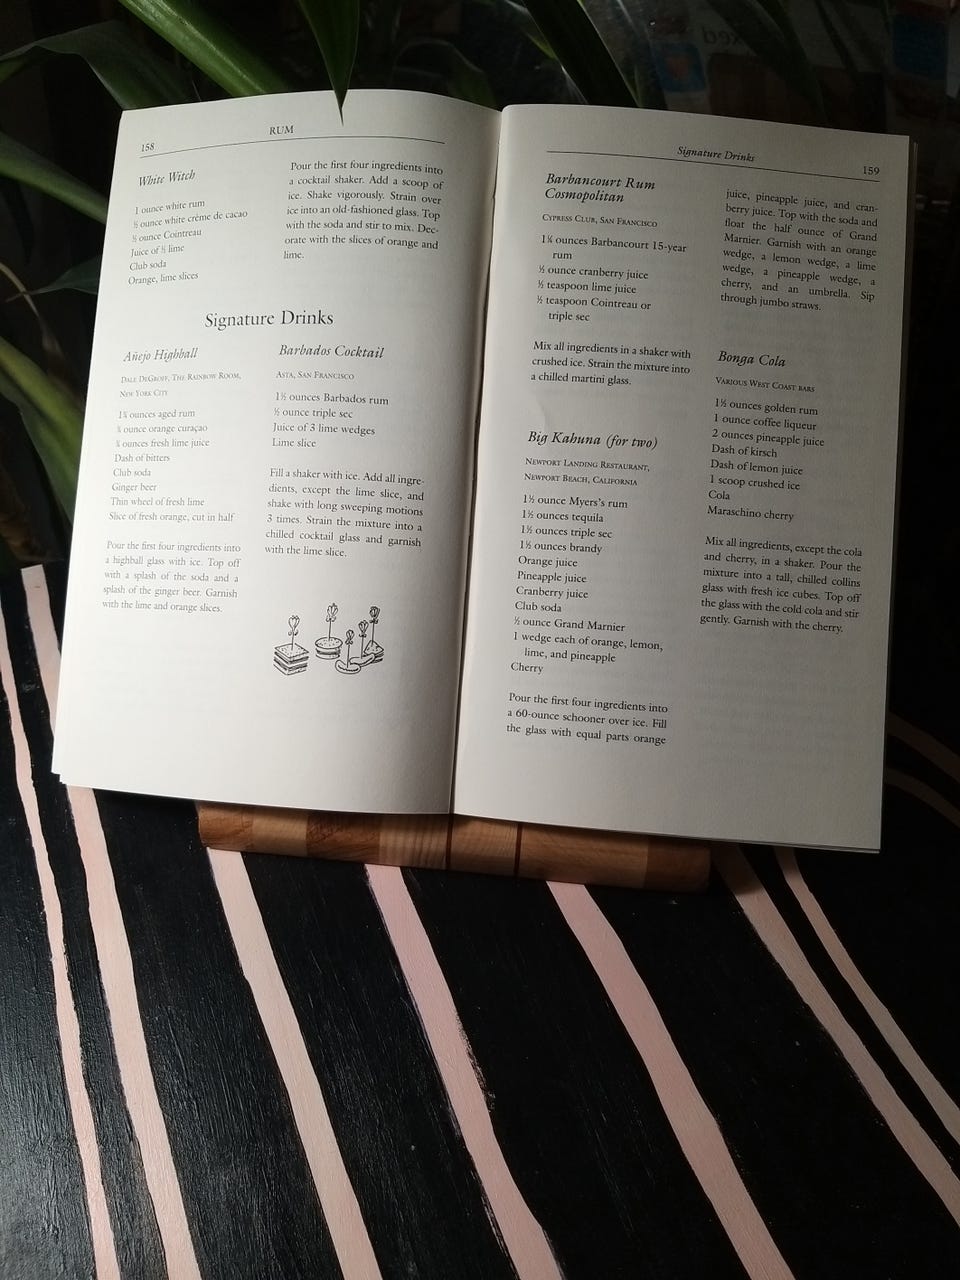 158
RUM
White Witch
1 ounce white rum
½ ounce white crème de cacao
½ ounce Cointreau
Juice of ½ lime
Club soda
Orange, lime slices
Pour the first four ingredients into
a cocktail shaker. Add a scoop of
ice. Shake vigorously. Strain over
ice into an old-fashioned glass. Top
with the soda and stir to mix. Dec-
orate with the slices of orange and
lime.
Signature Drinks
Añejo Highball
Dale DeGroff, The Rainbow Room,
New York City
ounces aged rum
ounce orange curaçao
ounces fresh lime juice
Dash of bitters
Club soda
Ginger beer
Thin wheel of fresh lime
Slice of fresh orange, cut in half
Pour the first four ingredients into
a highball glass with ice. Top off
with a splash of the soda and a
splash of the ginger beer. Garnish
with the lime and orange slices.
Barbados Cocktail
Asta, San Francisco
1½ ounces Barbados rum
½ ounce triple sec
Juice of 3 lime wedges
Lime slice
Fill a shaker with ice. Add all ingre-
dients, except the lime slice, and
shake with long sweeping motions
3 times. Strain the mixture into a
chilled cocktail glass and garnish
with the lime slice.
Signature Drinks
159
Barbancourt Rum
Cosmopolitan
Cypress Club, San Francisco
ounces Barbancourt 15-year
rum
½ ounce cranberry juice
½ teaspoon lime juice
½ teaspoon Cointreau or
triple sec
Mix all ingredients in a shaker with
crushed ice. Strain the mixture into
a chilled martini glass.
Big Kahuna (for two)
Newport Landing Restaurant,
Newport Beach, California
1½ ounce Myers's rum
1½ ounces tequila
1½ ounces triple sec
1½ ounces brandy
Orange juice
Pineapple juice
Cranberry juice
Club soda
½ ounce Grand Marnier
1 wedge each of orange, lemon,
lime, and pineapple
Cherry
Pour the first four ingredients into
a 60-ounce schooner over ice. Fill
the glass with equal parts orange
juice, pineapple juice, and cran-
berry juice. Top with the soda and
float the half ounce of Grand
Marnier. Garnish with an orange
wedge, a lemon wedge, a lime
wedge, a pineapple wedge, a
cherry, and an umbrella. Sip
through jumbo straws.
Bonga Cola
Various West Coast bars
1½ ounces golden rum
1 ounce coffee liqueur
2 ounces pineapple juice
Dash of kirsch
Dash of lemon juice
1 scoop crushed ice
Cola
Maraschino cherry
Mix all ingredients, except the cola
and cherry, in a shaker. Pour the
mixture into a tall, chilled collins
glass with fresh ice cubes. Top off
the glass with the cold cola and stir
gently. Garnish with the cherry.